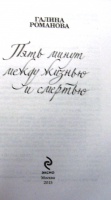 ГАЛИНА
РОМАНОВА
Пять минут
между жизнью
и смертью
ЭКСМО
Москва
2015